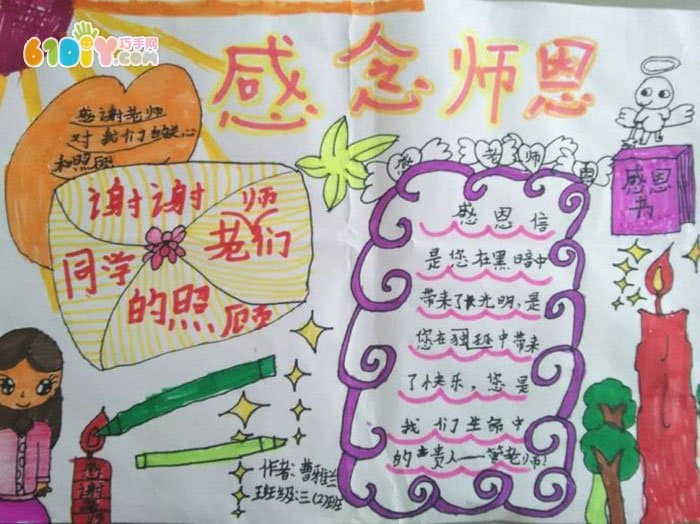 61DIY巧手网
.com
感念师恩
感谢老师
对我们的关心
和照顾
谢谢老师
同学们
的照顾
感老师恩
感恩书
感恩信
是您在黑暗中
带来了光明,是
您在中带来
了快乐,您是
我们生命中
的贵人——老师!
感谢
作者:曹雅兰
班级:三(2)班